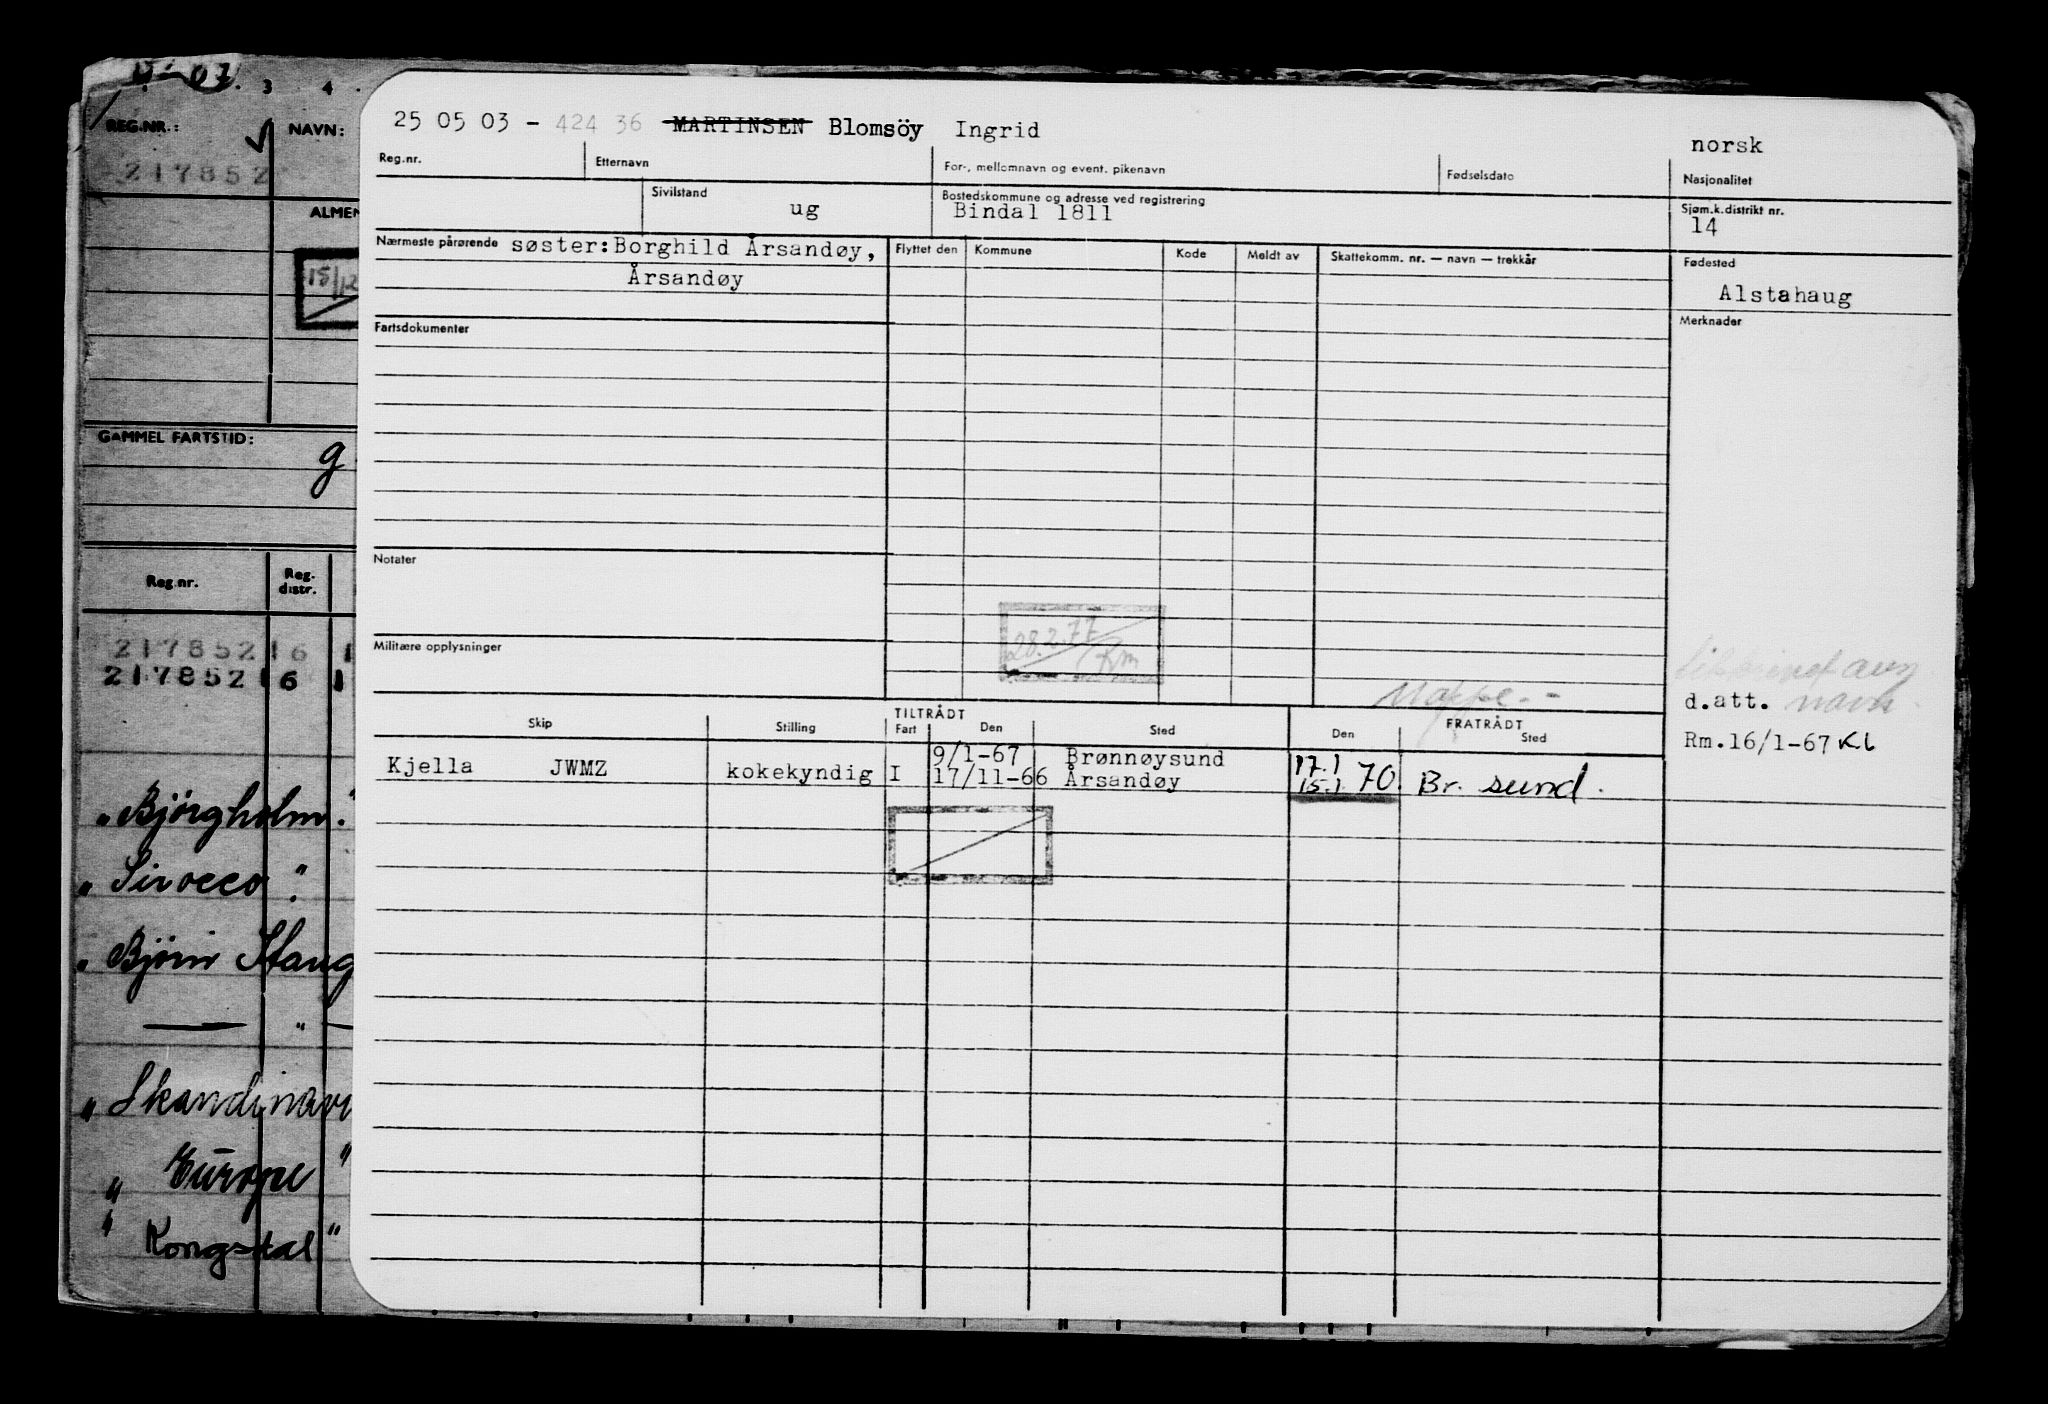 3 4
REG.NR.:
NAVN:
217852
ALMEN
15/12
GAMMEL FARTSTID:
g
Reg.nr.
Reg. distr.
217852 16 1
217852 16 1
"Bjørgholm."
"Sirocco."
"Bjørn Haug
— " —
"Skandinavi
"Europe"
"Kongsdal"
25 05 03 - 424 36 MARTINSEN Blomsöy Ingrid
norsk
Reg.nr. Etternavn For-, mellomnavn og event. pikenavn Fødselsdato Nasjonalitet
Sivilstand Bostedskommune og adresse ved registrering Sjøm.k.distrikt nr.
ug Bindal 1811 14
Nærmeste pårørende søster:Borghild Årsandøy,
Årsandøy
Flyttet den Kommune Kode Meldt av Skattekomm. nr. — navn — trekkår
Fødested
Alstahaug
Fartsdokumenter
Merknader
Notater
28.2.77
Rm
Militære opplysninger
Mappe.-
navn
d.att.
Rm.16/1-67 KL
Skip Stilling TILTRÅDT Fart Den Sted FRATRÅDT Den Sted
9/1-67 Brønnøysund 17.1
Kjella JWMZ kokekyndig I 17/11-66 Årsandøy 15.1 70. Br. sund.